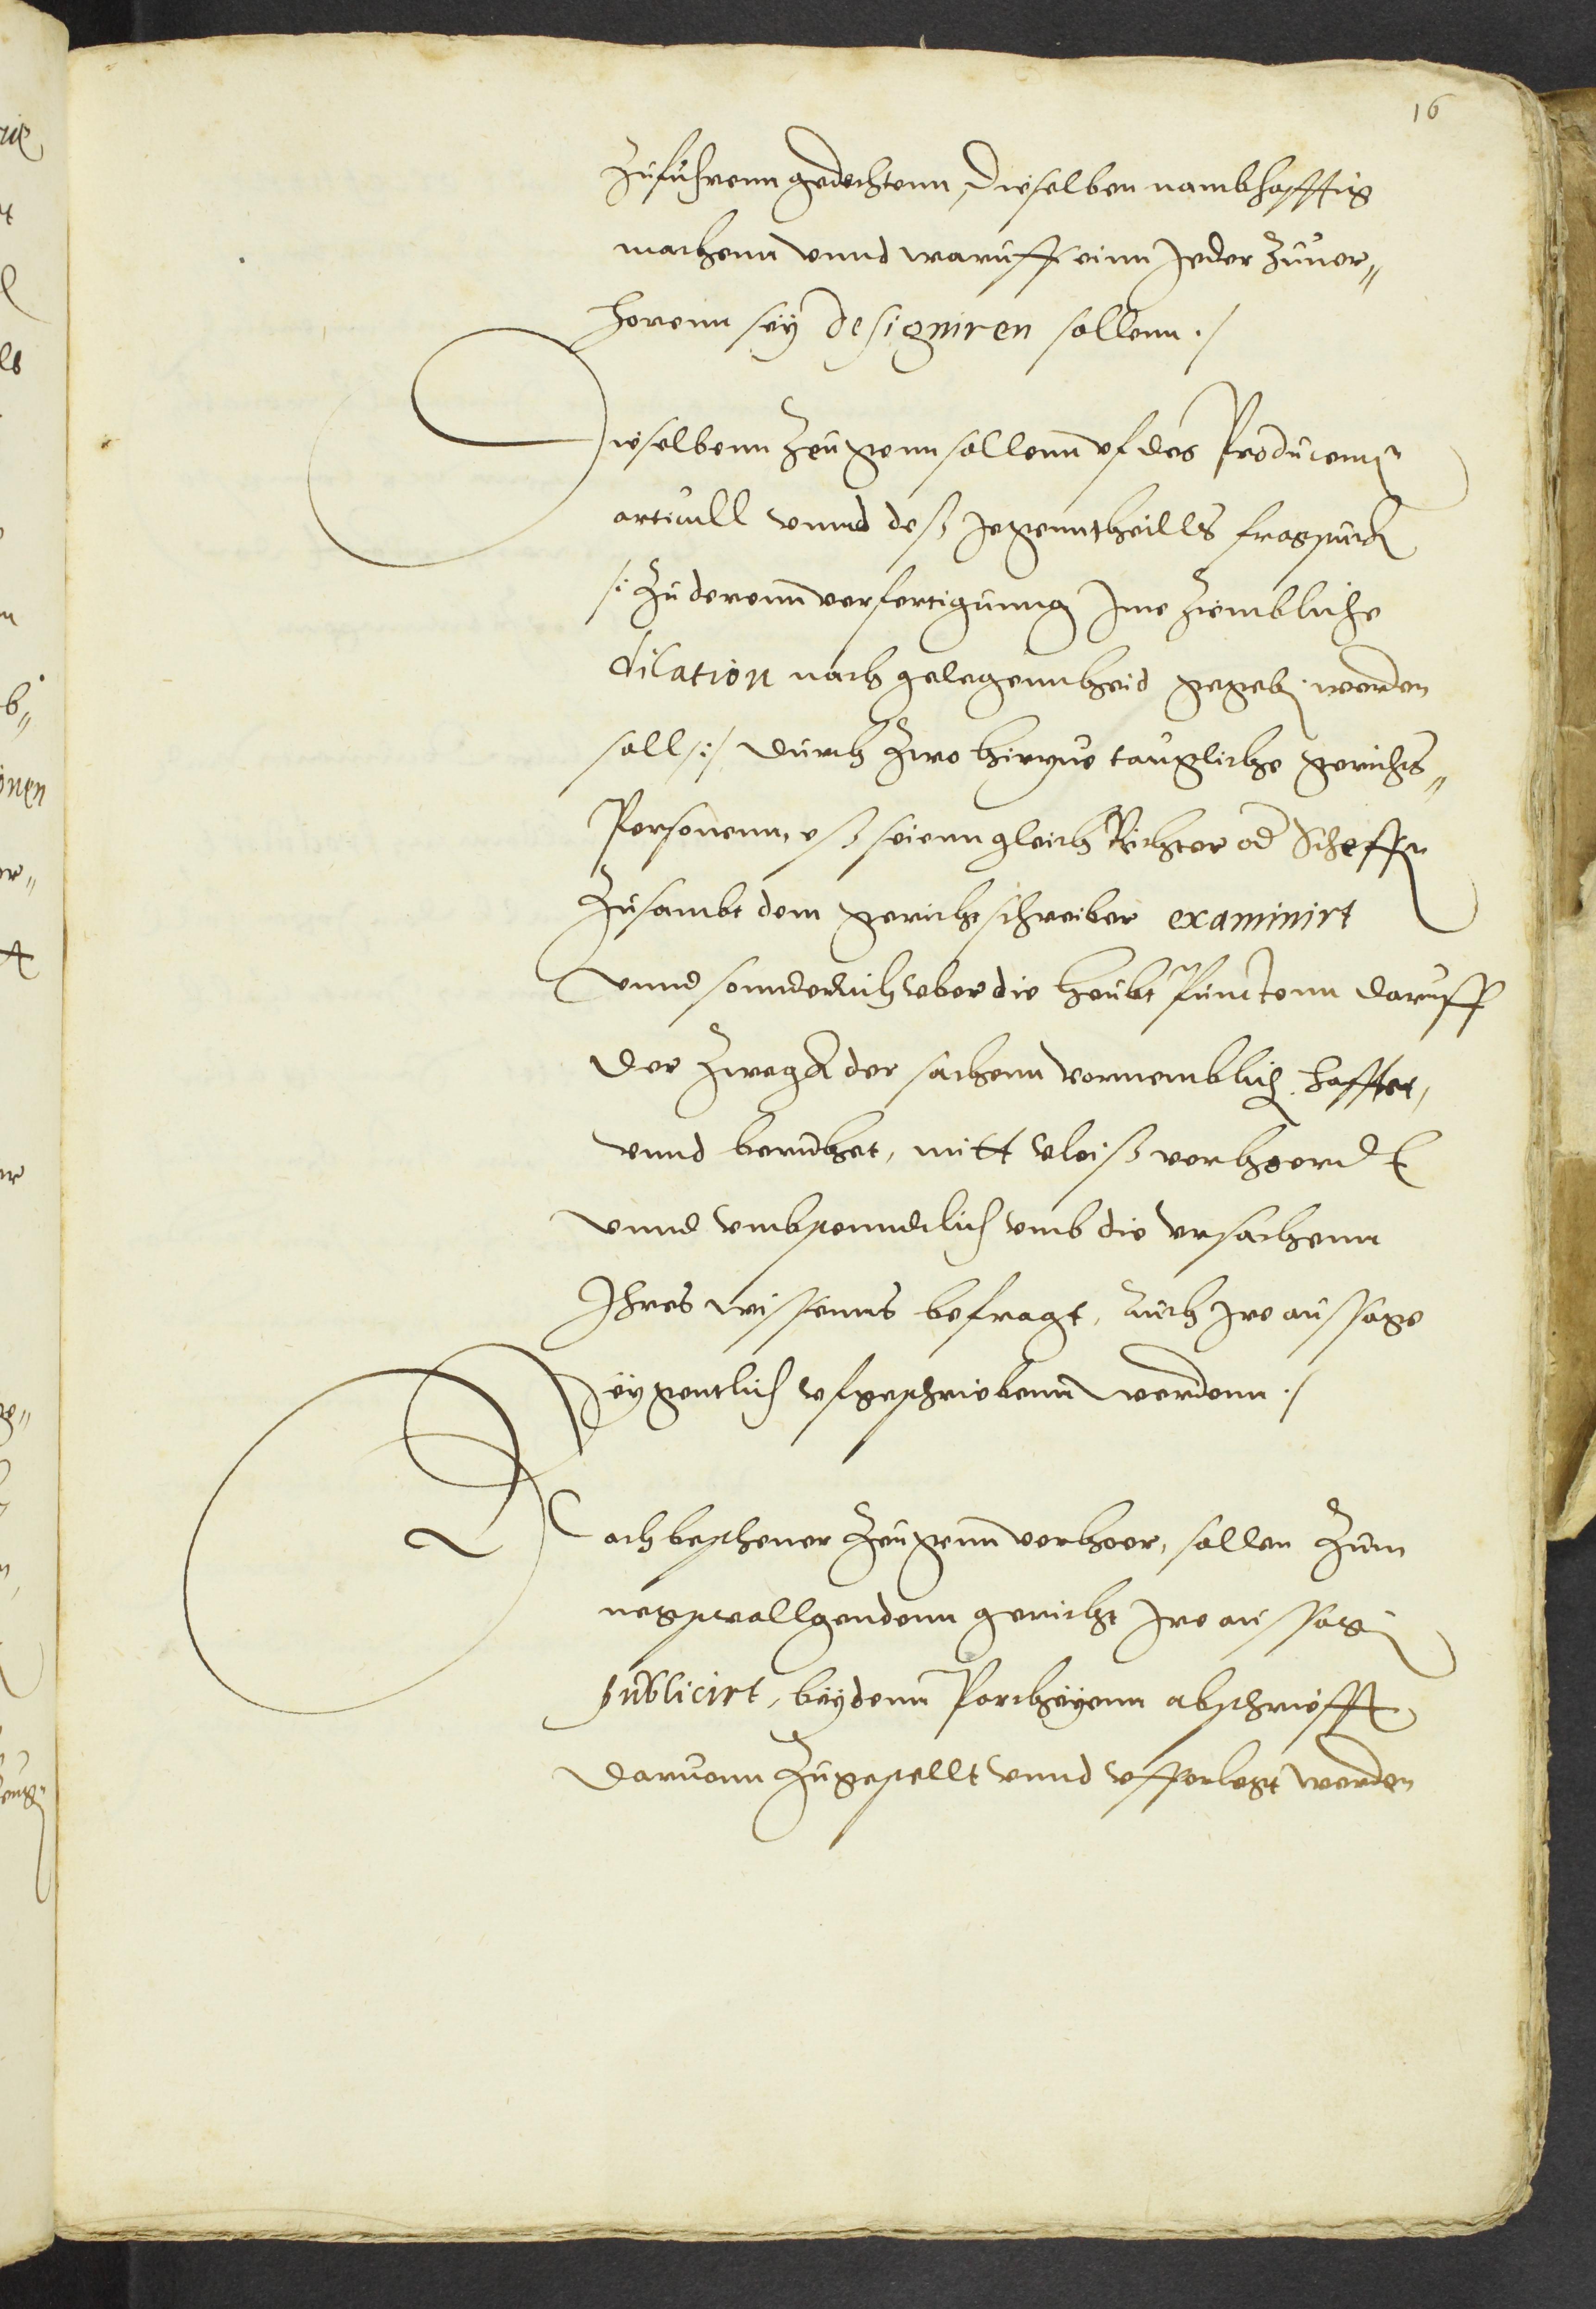 16
zufuhrenn gedechtenn, Dieselben nambhafftig
machenn vnnd waruff einn Jeder zuuer„
horenn seÿ designiren sollenn ./
Dieselbenn Zeugenn sollenn vf des Producenten
articull vnnd deß Jegenntheills fragstuck
/: Zu derenn verfertigunng Jme Ziembliche
dilation nach gelegennheid gegeben werden
soll :/ durch Zwo hirzue taugliche gerichts„
Personenn, eß seienn gleich Richter od Scheffen
Zusambt dem gerichtschreiber examinirt
vnnd sonnderlich vber die heubt Punctenn daruff
der Zwegk der sachenn vornemblich hafftet,
vnnd beruhet, mitt vleiß verhoerdt
vnnd vmbstenndlich vmb die vrsachenn
Jhres wissenns befragt, Auch Jre aussage
eÿgentlich vfgeschriebenn werdenn ./
Nach beschener Zeugenn verhoer, sollen Zum
negstuollgendenn gericht Jre aussag
publicirt, beÿdenn Partheÿenn abschriefft
daruonn Zugestellt vnnd vfferlegt werden